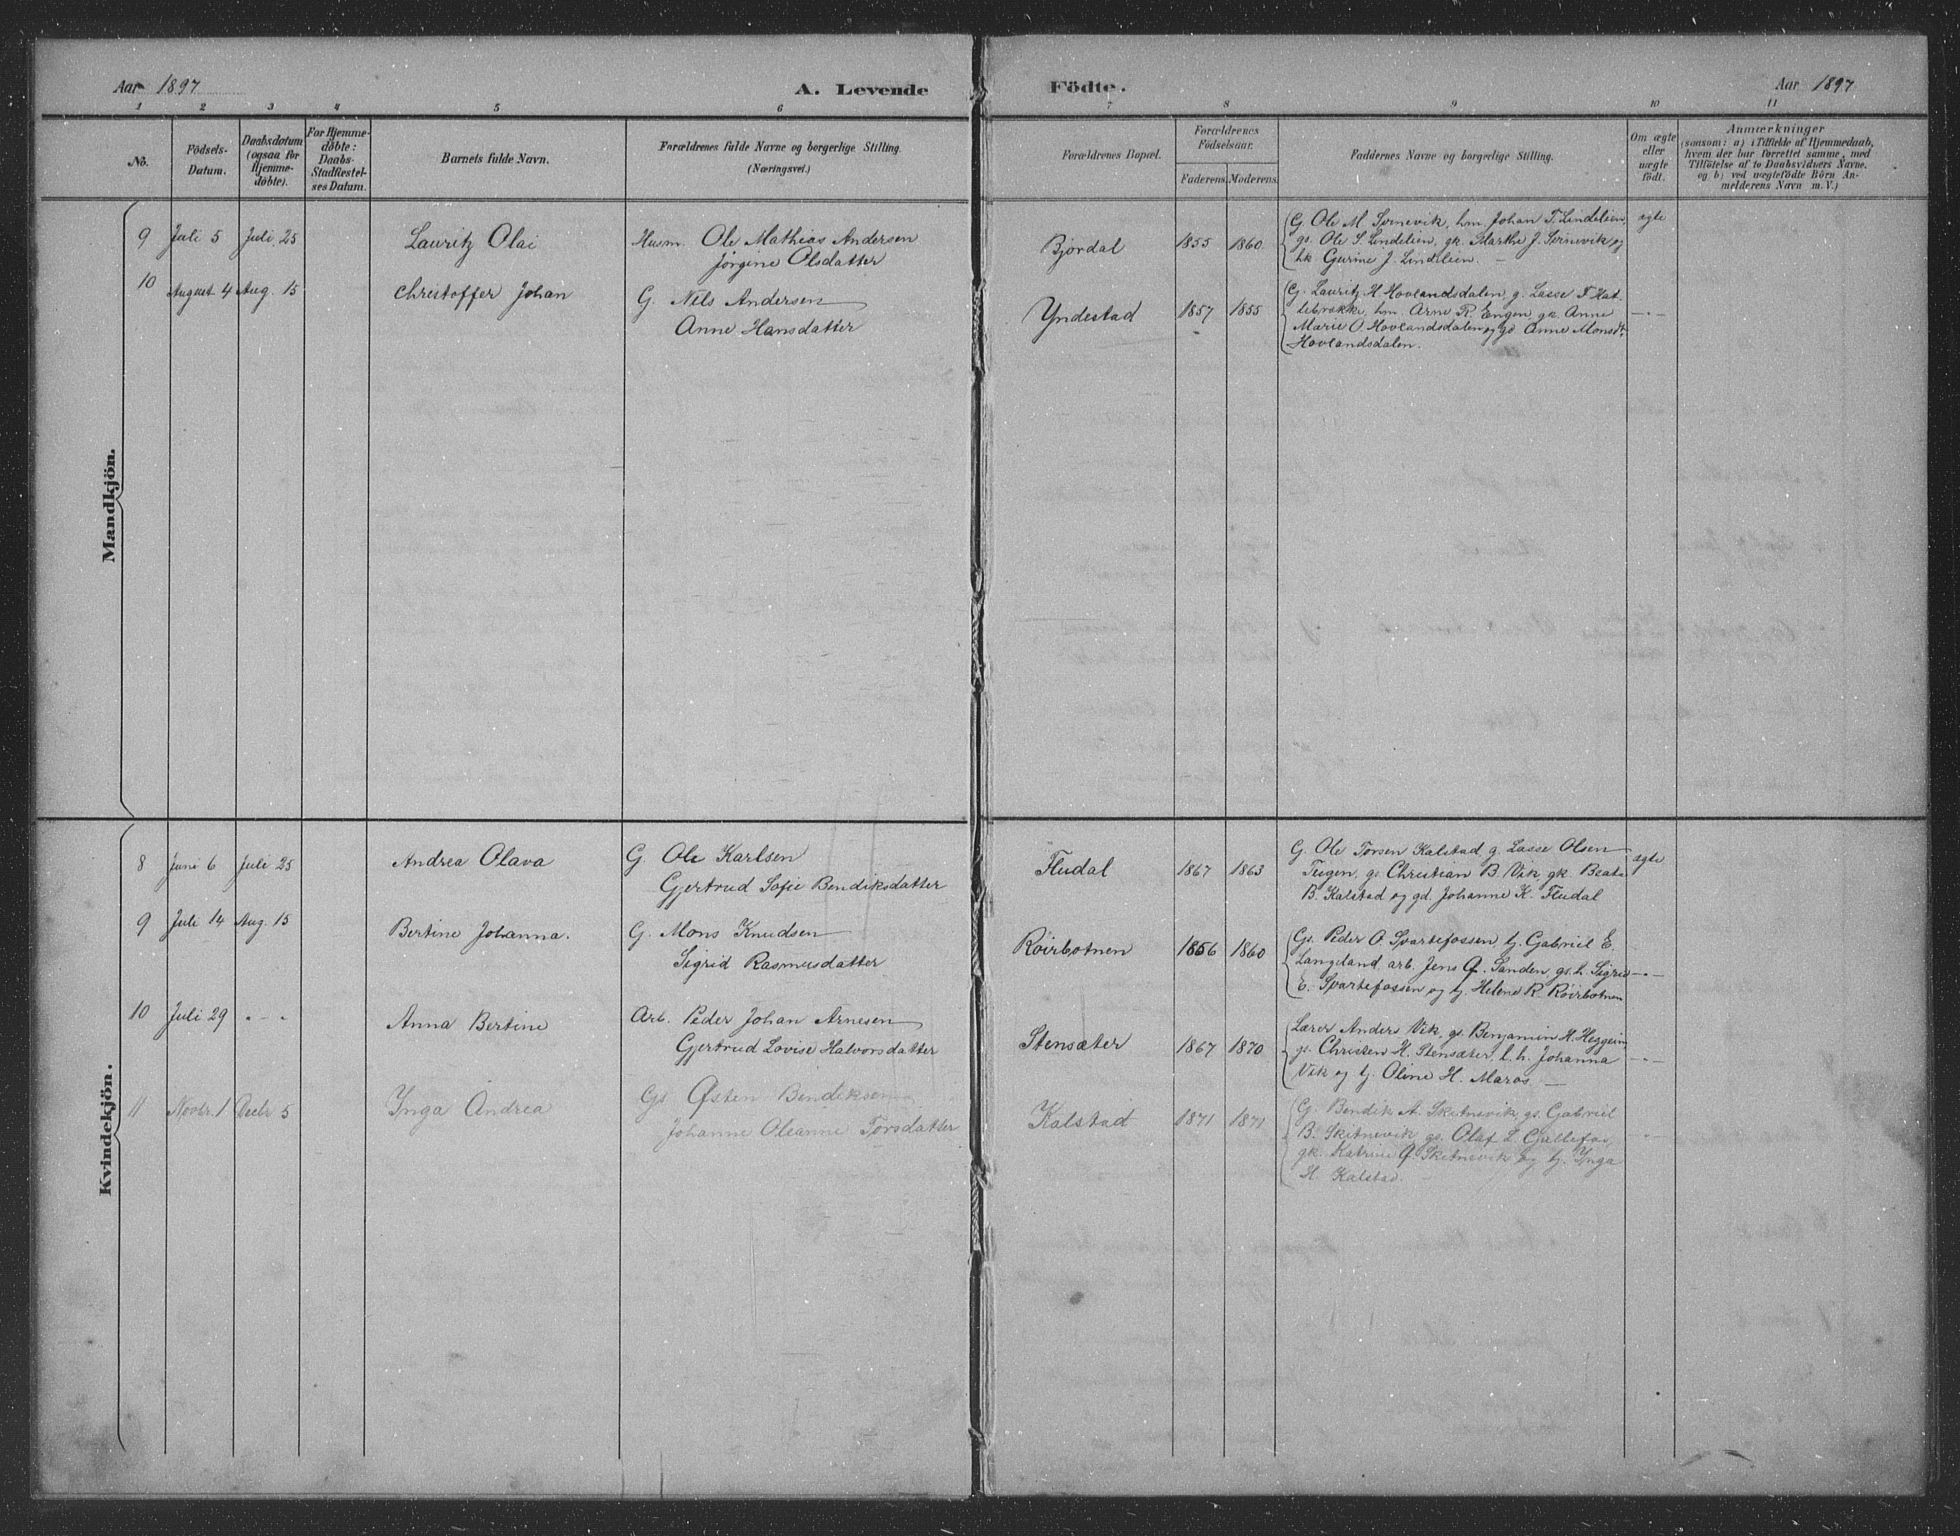 Aar 1897
A. Levende
Födte.
Aar 1897
1 2 3 4 5 6 7 8 9 10 11
No.
Födsels-Datum.
Daabsdatum (ogsaa for Hjemme-döbte).
For Hjemme-döbte: Daabs-Stadfæstel-ses Datum.
Barnets fulde Navn.
Forældrenes fulde Navne og borgerlige Stilling. (Næringsvei.)
Forældrenes Bopæl.
Forældrenes Födselsaar.
Faderens. Moderens.
Faddernes Navne og borgerlige Stilling.
Om ægte eller uægte födt.
Anmærkninger
(saasom: a) i Tilfælde af Hjemmedaab,
hvem der har forrettet samme, med
Tilföielse af to Daabsvidners Navne,
og b) ved uægtefödte Börn An-
melderens Navn m. V.)
Mandkjön.
9 Juli 5 Juli 25 Lauritz Olai Husm. Ole Mathias Andersen
Jørgine Olsdatter
Bjordal 1855 1860
G. Ole M. Sørnevik, hm Johan T. Lindeleien,
gs. Ole S. Lindeleien, gk. Marthe J. Sørnevik og
hk Gurine J. Lindeleien. —
ægte
10 August 4 Aug. 15 Christoffer Johan G. Nils Andersen
Anne Hansdatter
Yndestad 1857 1855
G. Lauritz H. Hovlandsdalen, g. Lasse T. Hat-
lebrække, hm Arne R. Engen, gk. Anne
Marie O. Hovlandsdalen og gd Anne Monsdt.
Hovlandsdalen.
—"—
Kvindekjön.
8 Juni 6 Juli 25 Andrea Olava G. Ole Karlsen
Gjertrud Sofie Bendiksdatter
Fludal 1867 1863
G. Ole Torsen Kalstad, g. Lasse Olsen
Teigen, gs. Christian B. Vik, gk. Beate
B. Kalstad og gd. Johanne K. Fludal
ægte
9 Juli 14 Aug. 15 Bertine Johanna. G. Mons Knudsen
Sigrid Rasmusdatter
Röirbotnen 1856 1860
Gs. Peder O. Svartefossen, tj. Gabriel E.
Langeland, arb. Jens Q. Sanden, gs. h. Sigrid
E. Svartefossen og tj. Helene R. Röirbotnen
—"—
10 Juli 29 " — " Anna Bertine Arb. Peder Johan Arnesen
Gjertrud Lovise Halvorsdatter
Stensæter 1867 1870
Lærer Anders Vik, gs. Benjamin H. Heggeim,
gs. Christen H. Stensæter, l. h. Johanna
Vik og tj. Oline H. Marøs. —
—"—
11 Novbr. 1 Decbr 5 Inga Andrea Gs. Østen Bendiksen
Johanne Oleanne Torsdatter
Kalstad 1871 1871
G. Bendik A. Skitnevik, gs. Gabriel
B. Skitnevik, gs. Olaf L.
gk. Katrine Q. Skitnevik og tj. Inga
H. Kalstad.
—"—